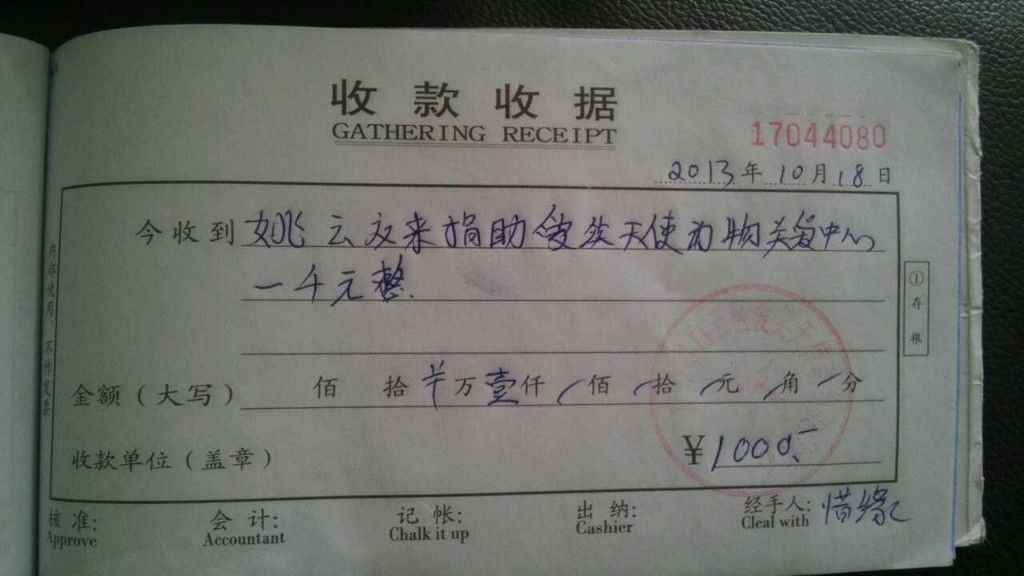 收款收据
GATHERING RECEIPT
17044080
2013年10月18日
今收到 姚云友来捐助 天使动物关爱中心
一千元整.
金额（大写） 佰 拾 ¥万壹仟/佰/拾/元/角/分
收款单位（盖章） ¥1000.-
核准: 会计: 记帐: 出纳: 经手人: 惜缘
Approve Accountant Chalk it up Cashier Cleal with
①存根
内部使用 不作发票